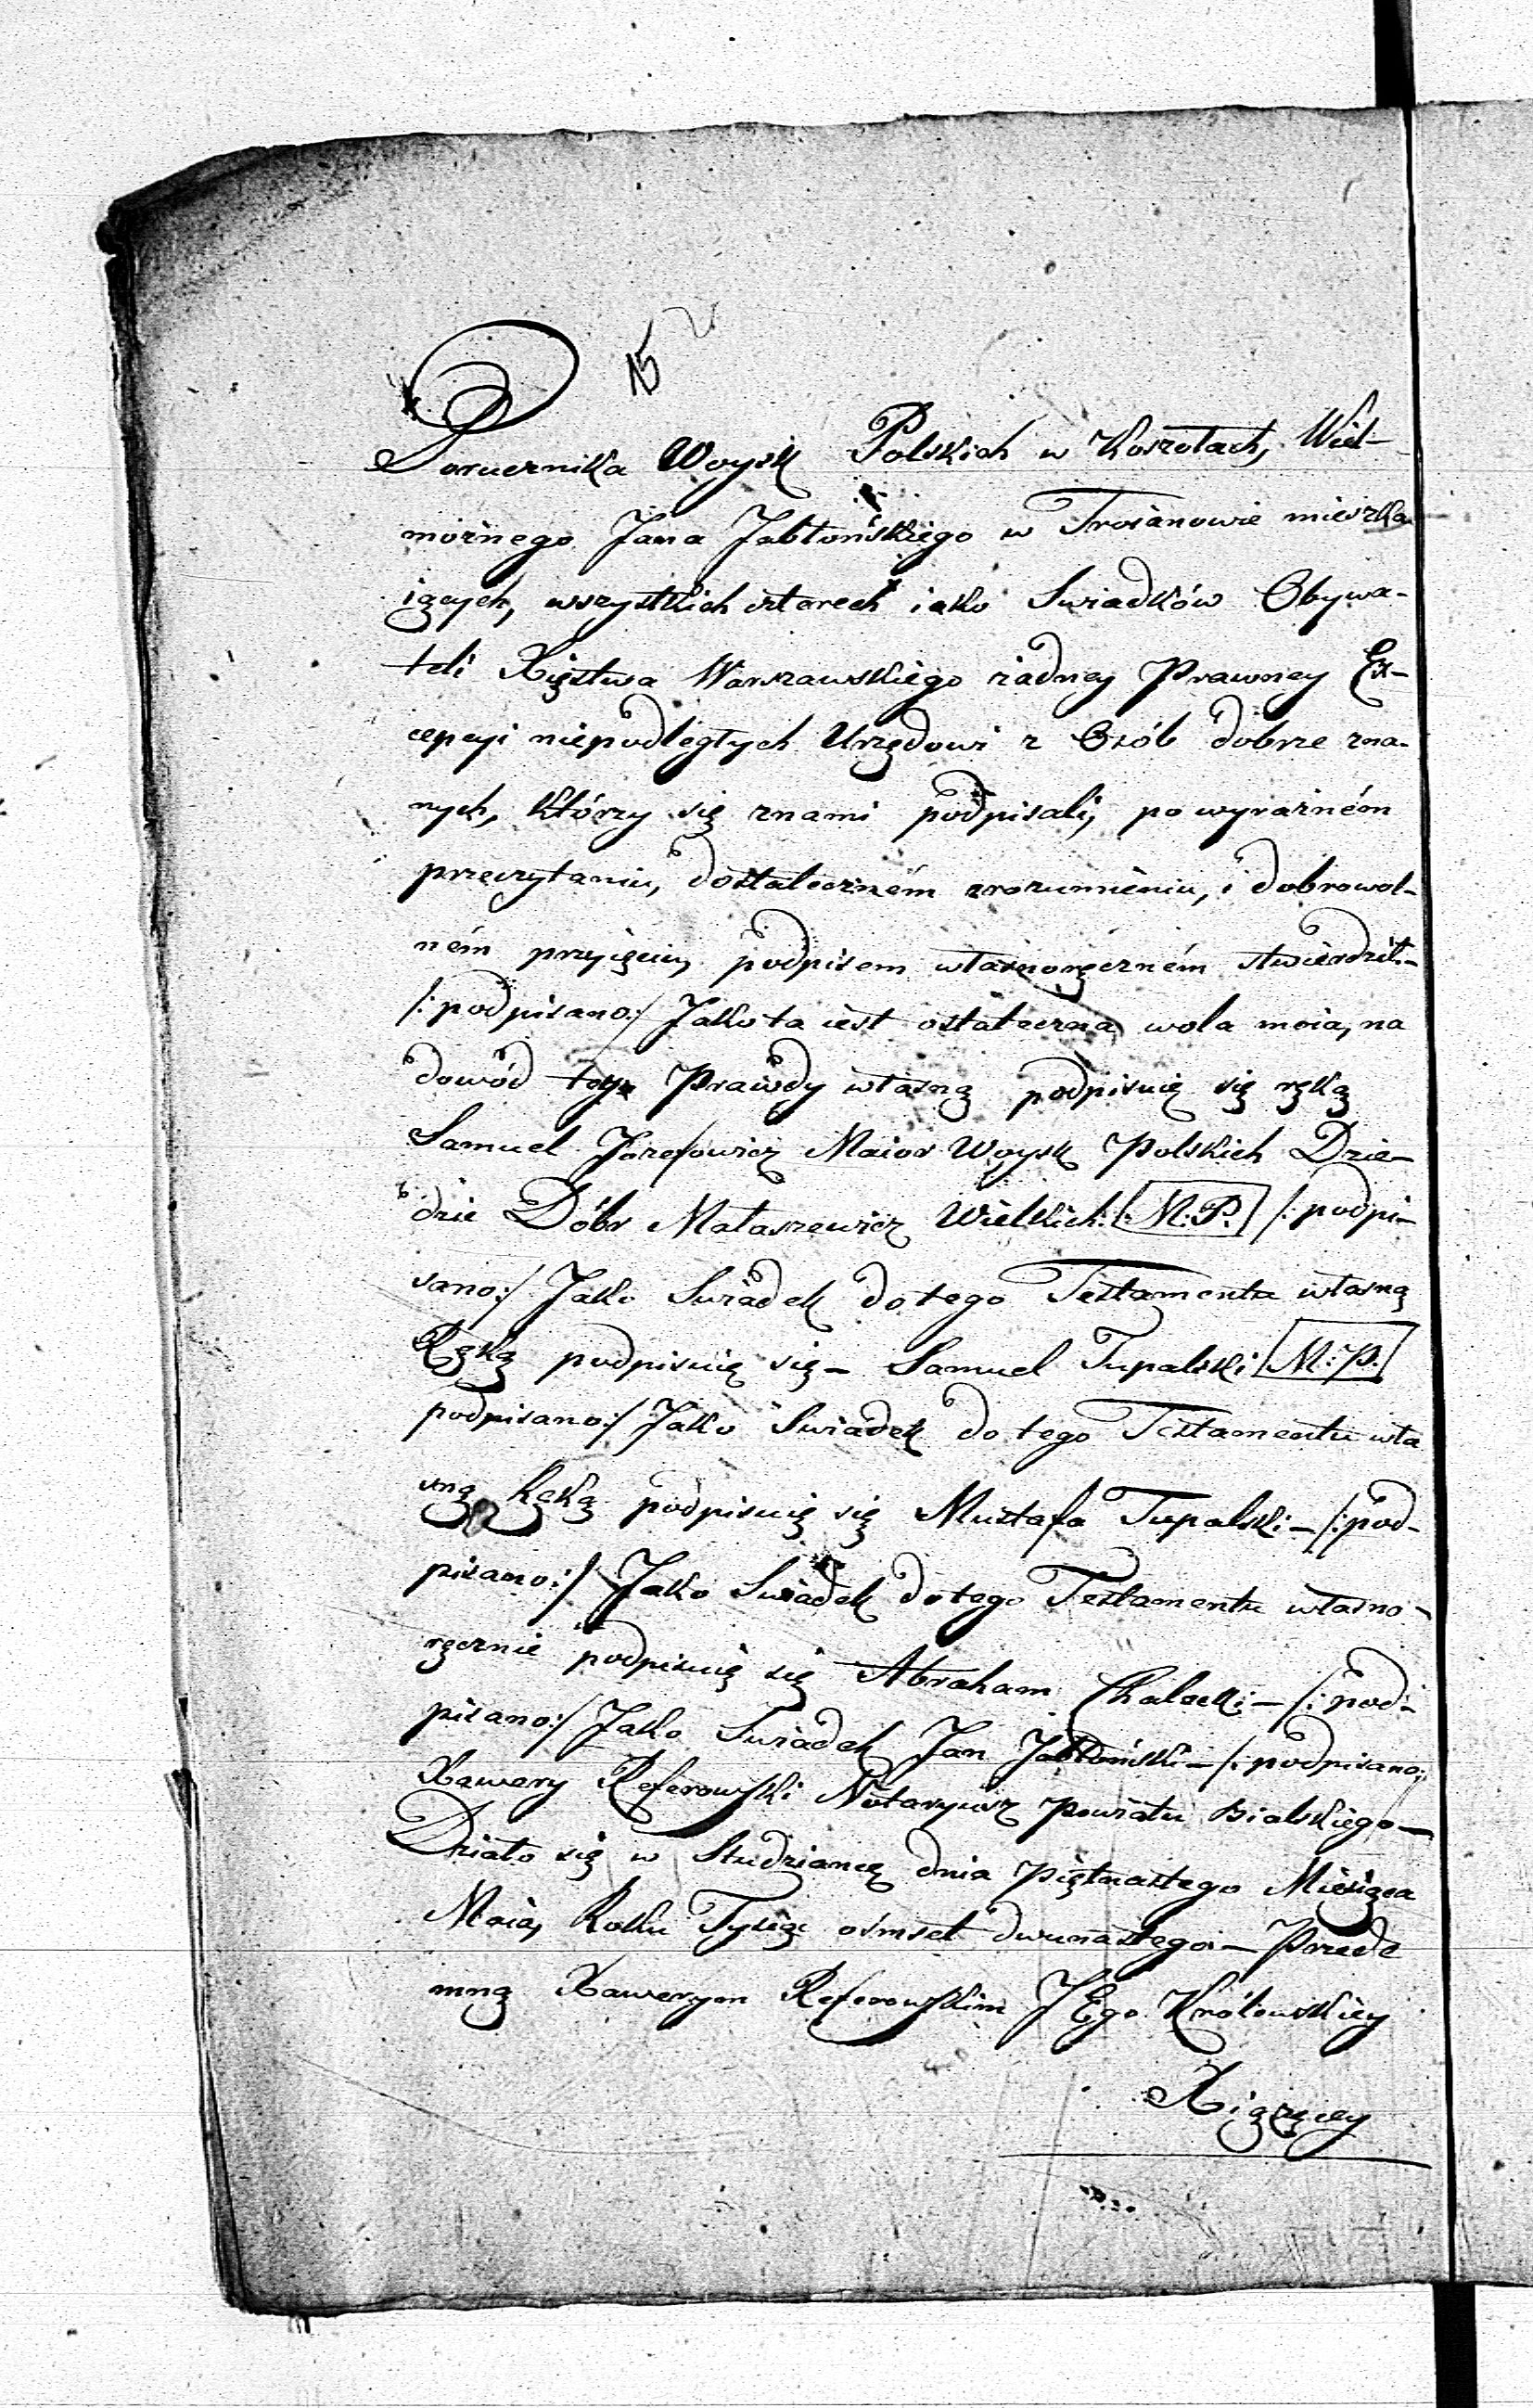 15
Porucznika Woysk Polskich w Koszołach, Wiel-
możnego Jana Jabłońskiego w Trosianowie mieszka
iących, wszystkich czterech iako Swiadków Obywa-
teli Xięstwa Warszawskiego żadney Prawney Ex-
cepcyi niepodległych Urzędowi z Osób dobrze zna-
nych, którzy się znami podpisali, po wyraźném
przeczytaniu, dostateczném zrozumieniu, i dobrowol-
ném przyięciu, podpisem własnoręczném stwierdził.-
/:podpisano:/ Jako ta iest ostateczna wola moia, na
dowód tey Prawdy własną podpisuię się ręką
Samuel Józefowicz Maior Woysk Polskich Dzie-
dzic Dóbr Małaszewicz Wielkich: /:M:P:/ /:podpi-
sano:/ Jako Swiadek do tego Testamentu własną
Ręką podpisuię się- Samuel Tupalski /M:P:/
podpisano:/ Jako Swiadek do tego Testamentu wła
sną Ręką podpisuię się Mustafa Tupalski- /:pod-
pisano:/ Jako Swiadek do tego Testamentu własno-
ręcznie podpisuię się Abraham Chalecki- /:pod-
pisano:/ Jako Swiadek Jan Jabłoński- /:podpisano:/
Xawery Referowski Notaryusz Powiatu Bialskiego-
Działo się w Studziance dnia Piętnastego Miesiąca
Maia, Roku Tysiąc ośmset dwunastego- Przede
mną Xawerym Referowskim JEgo Królewskiey
Xiążęcey